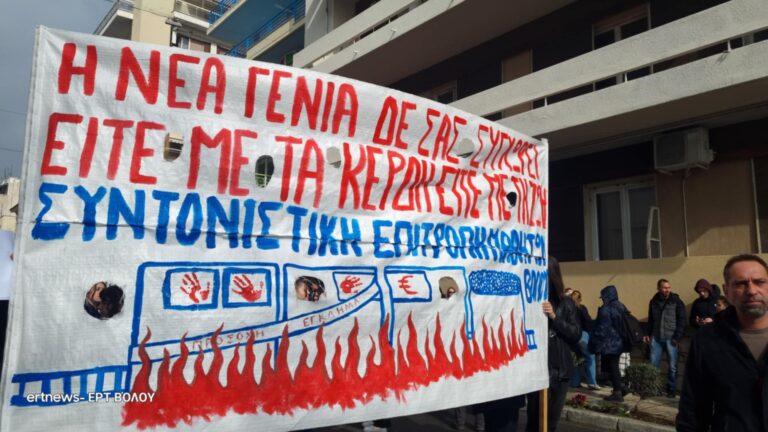 Η ΝΕΑ ΓΕΝΙΑ ΔΕ ΣΑΣ ΣΥΓΧΩΡΕΙ
ΕΙΤΕ ΜΕ ΤΑ ΚΕΡΔΗ ΕΙΤΕ ΜΕ ΤΗ ΖΩΗ
ΣΥΝΤΟΝΙΣΤΙΚΗ ΕΠΙΤΡΟΠΗ ΜΑΘΗΤΩΝ
ΒΟΛΟΥ
ΠΡΟΣΟΧΗ ΕΓΚΛΗΜΑ
€
ertnews- ΕΡΤ ΒΟΛΟΥ